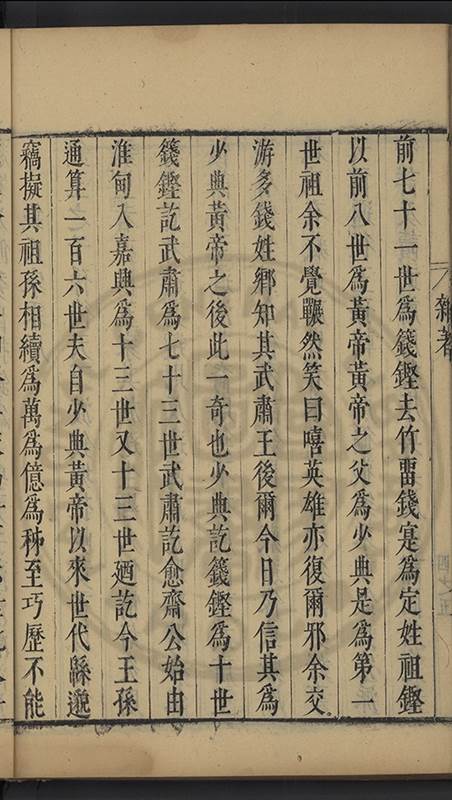 雜著
前七十一世爲籛鏗去竹畱錢寔爲定姓祖鏗
以前八世爲黃帝黃帝之父爲少典是爲第一
世祖余不覺囅然笑曰嘻英雄亦復爾邪余交
游多錢姓鄉知其武肅王後爾今日乃信其爲
少典黃帝之後此一奇也少典訖籛鏗爲十世
籛鏗訖武肅爲七十三世武肅訖愈齋公始由
淮甸入嘉興爲十三世又十三世廼訖今王孫
通算一百六世夫自少典黃帝以來世代緜邈
竊擬其祖孫相續爲萬爲億爲秭至巧歷不能